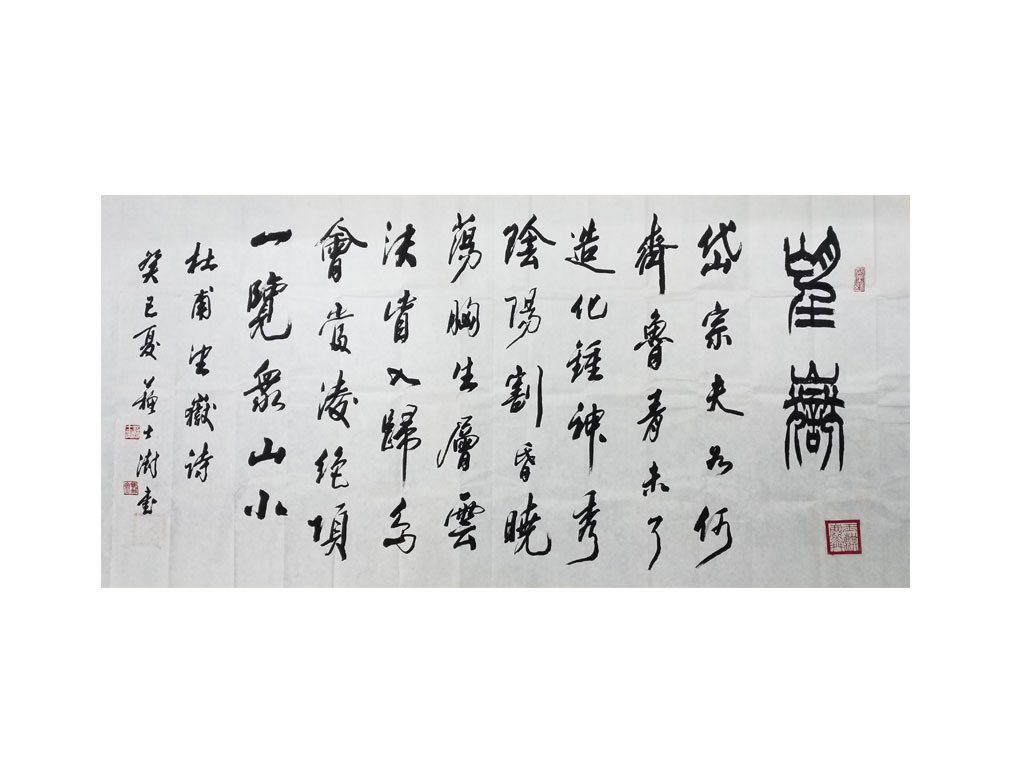 望嶽
岱宗夫如何
齊魯青未了
造化鍾神秀
陰陽割昏曉
蕩胸生層雲
決眥入歸鳥
會當凌絕頂
一覽眾山小
杜甫望嶽詩
癸巳夏蘇士澍書